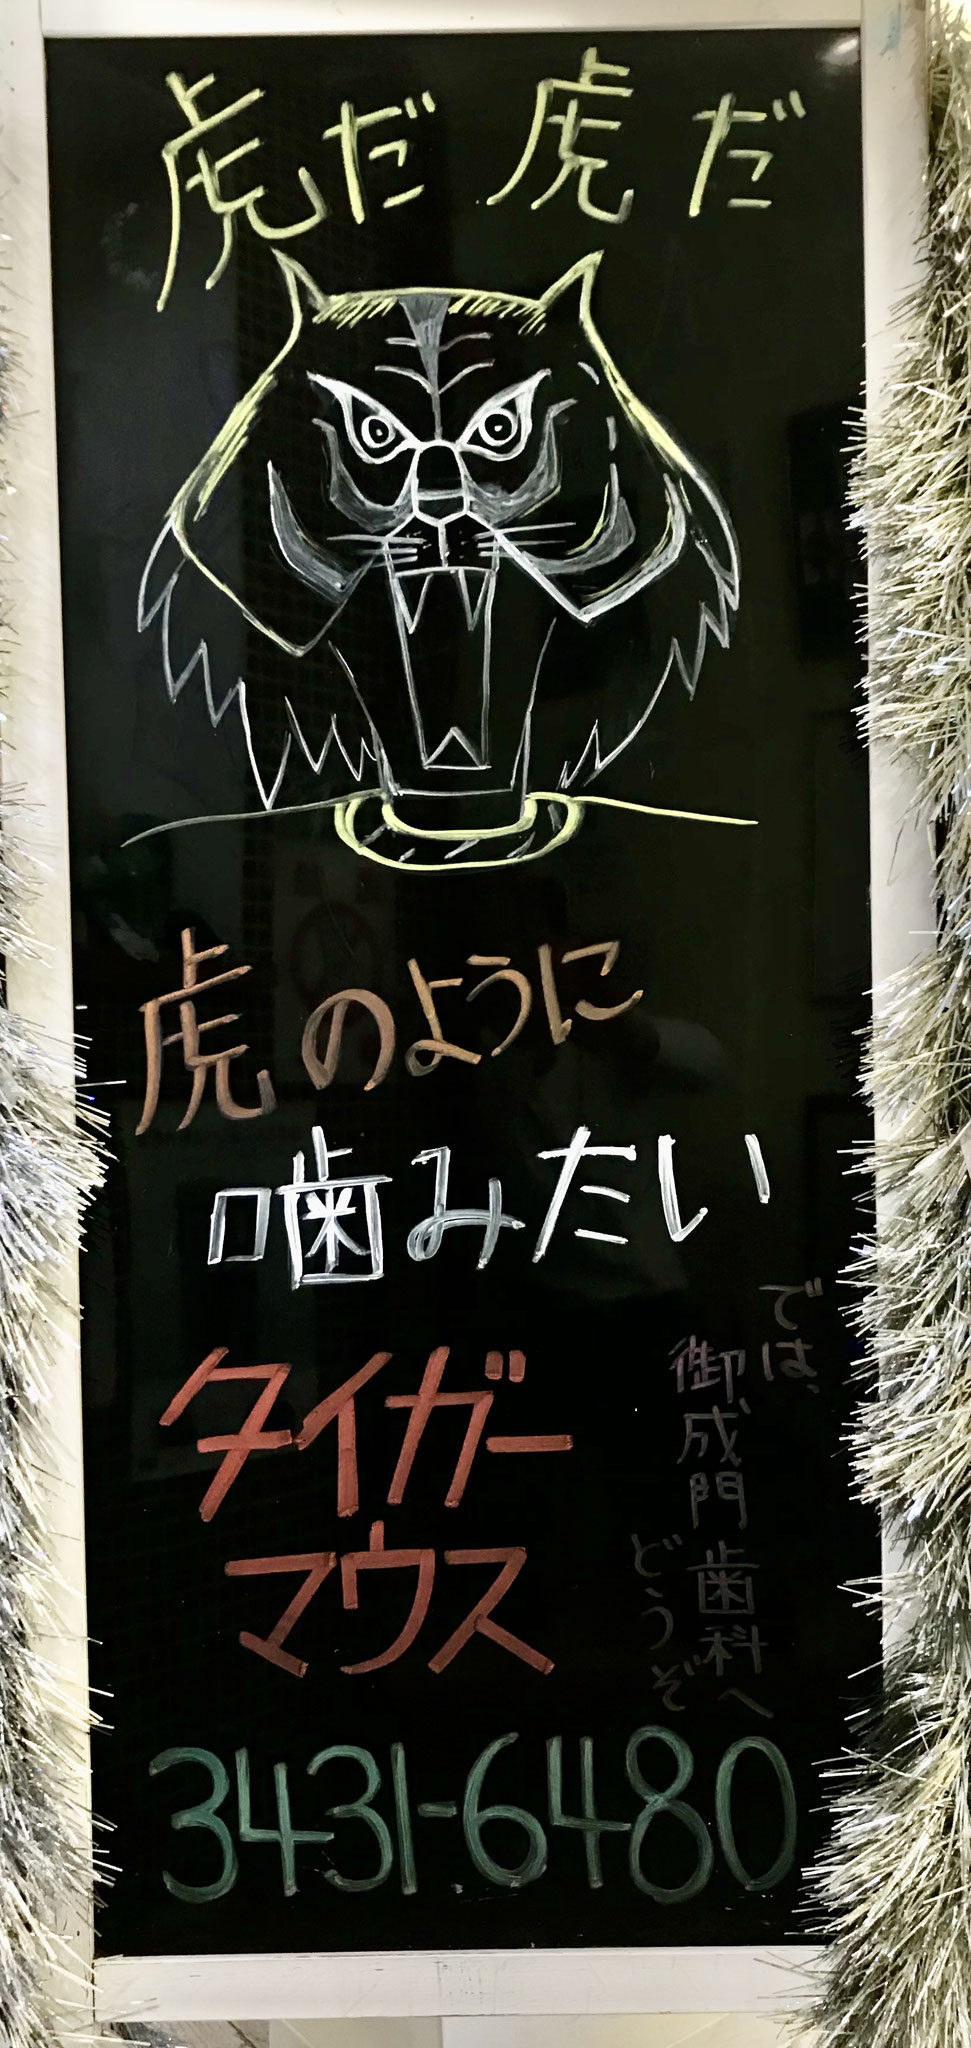 虎だ虎だ
虎のように
噛みたい
タイガー
マウス
では、
御成門歯科へ
どうぞ
3431-6480